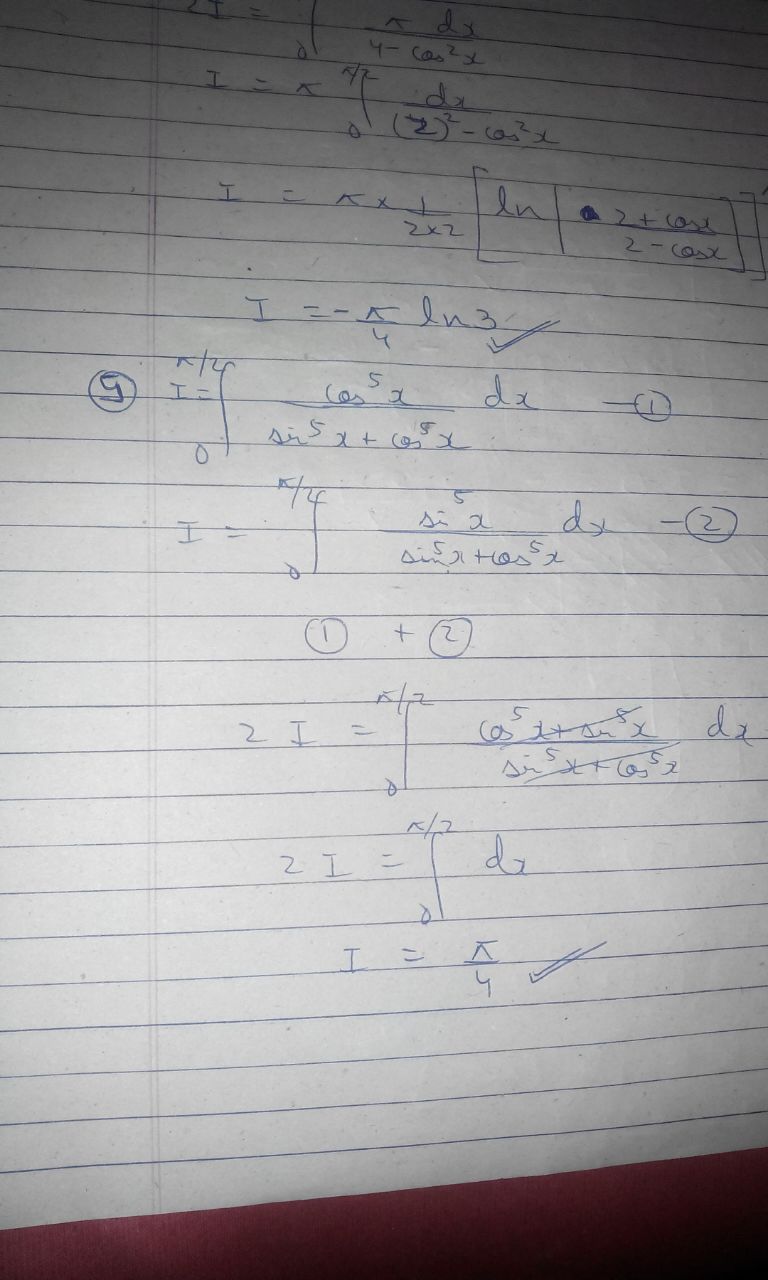 2I = ∫₀ π dx / 4 - cos²x
I = π ∫₀^π/2 dx / (2)² - cos²x
I = π × 1 / 2×2 [ln | 2 + cosx / 2 - cosx]
I = - π/4 ln3 ✓
⑤ I = ∫₀^π/2 cos⁵x / sin⁵x + cos⁵x dx — ①
I = ∫₀^π/2 sin⁵x / sin⁵x + cos⁵x dx — ②
① + ②
2 I = ∫₀^π/2 cos⁵x + sin⁵x / sin⁵x + cos⁵x dx
2 I = ∫₀^π/2 dx
I = π/4 ✓